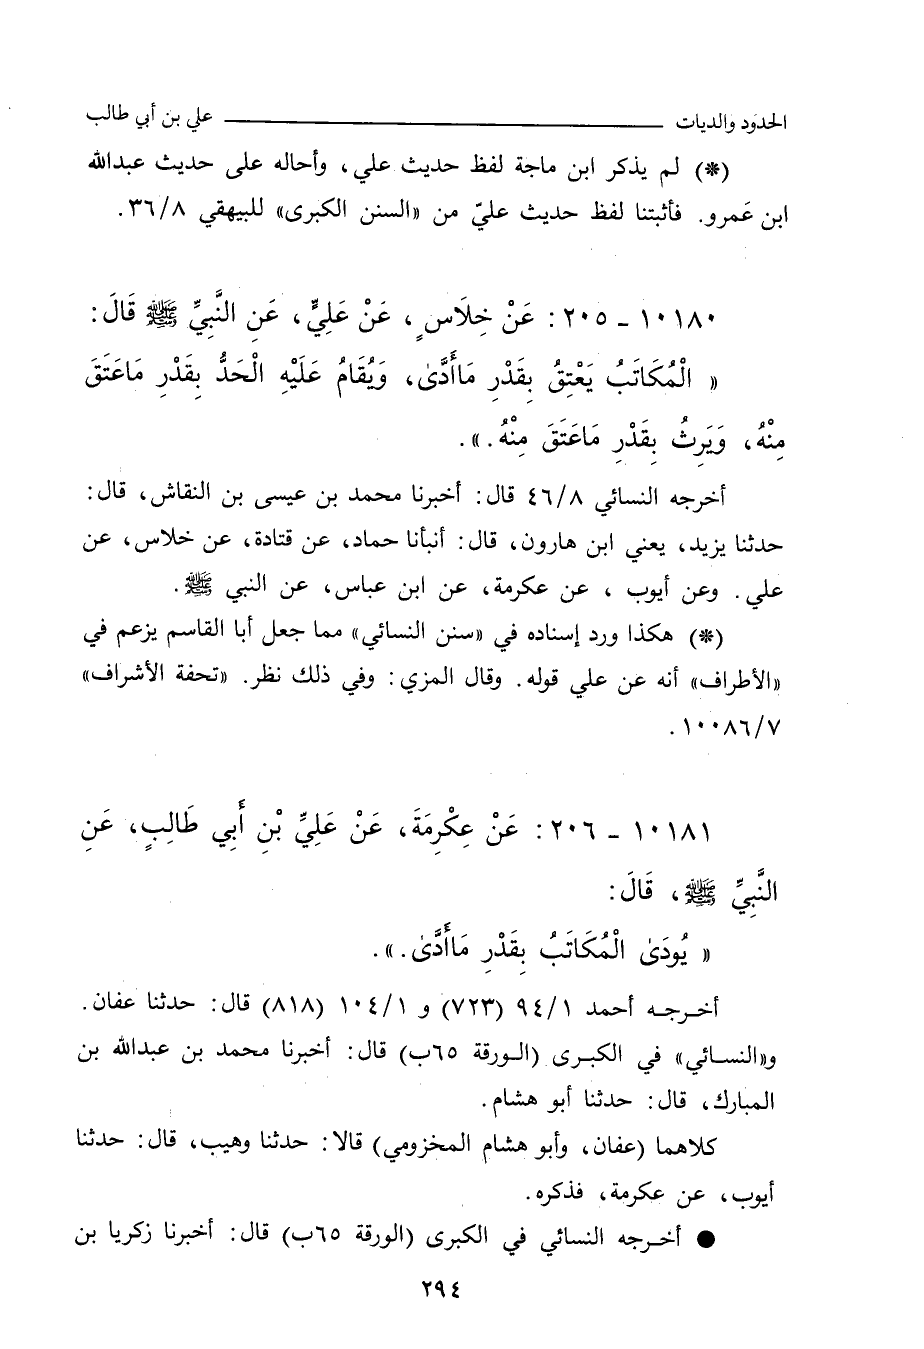 الحدود والديات ـــــــــــــــ علي بن أبي طالب
(*) لم يذكر ابن ماجة لفظ حديث علي، وأحاله على حديث عبدالله
ابن عَمرو. فأثبتنا لفظ حديث عليّ من «السنن الكبرى» للبيهقي ٣٦/٨.
١٠١٨٠ ـ ٢٠٥: عَنْ خِلَاسٍ، عَنْ عَلِيٍّ، عَنِ النَّبِيِّ ﷺ قَالَ:
« الْمُكَاتَبُ يَعْتِقُ بِقَدْرِ مَاأَدَّىٰ، وَيُقَامُ عَلَيْهِ الْحَدُّ بِقَدْرِ مَاعَتَقَ
مِنْهُ، وَيَرِثُ بِقَدْرِ مَاعَتَقَ مِنْهُ. ».
أخرجه النسائي ٤٦/٨ قال: أخبرنا محمد بن عيسى بن النقاش، قال:
حدثنا يزيد، يعني ابن هارون، قال: أنبأنا حماد، عن قتادة، عن خلاس، عن
علي. وعن أيوب ، عن عكرمة، عن ابن عباس، عن النبي ﷺ.
(*) هكذا ورد إسناده في «سنن النسائي» مما جعل أبا القاسم يزعم في
«الأطراف» أنه عن علي قوله. وقال المزي: وفي ذلك نظر. «تحفة الأشراف»
١٠٠٨٦/٧.
١٠١٨١ ـ ٢٠٦: عَنْ عِكْرِمَةَ، عَنْ عَلِيِّ بْنِ أَبِي طَالِبٍ، عَنِ
النَّبِيِّ ﷺ، قَالَ:
« يُودَىٰ الْمُكَاتَبُ بِقَدْرِ مَاأَدَّىٰ. ».
أخرجه أحمد ٩٤/١ (٧٢٣) و ١٠٤/١ (٨١٨) قال: حدثنا عفان.
و«النسائي» في الكبرى (الورقة ٦٥ب) قال: أخبرنا محمد بن عبدالله بن
المبارك، قال: حدثنا أبو هشام.
كلاهما (عفان، وأبو هشام المخزومي) قالا: حدثنا وهيب، قال: حدثنا
أيوب، عن عكرمة، فذكره.
● أخرجه النسائي في الكبرى (الورقة ٦٥ب) قال: أخبرنا زكريا بن
٢٩٤